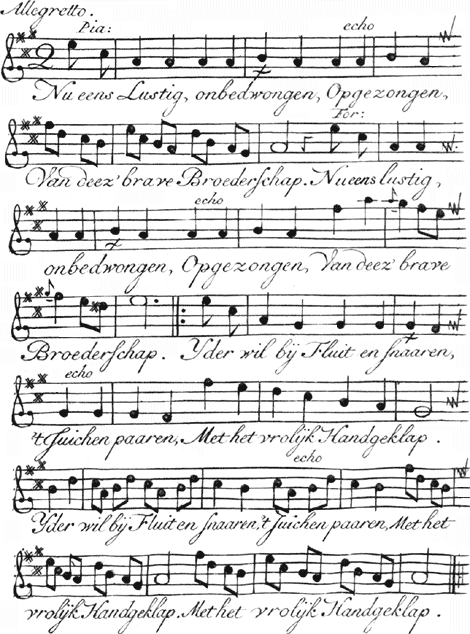 Allegretto.
Pia:
echo
2
Nu eens Lustig, onbedwongen, Opgezongen,
For:
Van deez' brave Broederschap. Nu eens lustig,
echo
onbedwongen, Opgezongen, Van deez' brave
Broederschap. Yder wil bij Fluit en snaaren,
echo
't Juichen paaren, Met het vrolijk Handgeklap.
echo
Yder wil bij Fluit en snaaren, 't juichen paaren, Met het
vrolijk Handgeklap. Met het vrolijk Handgeklap.